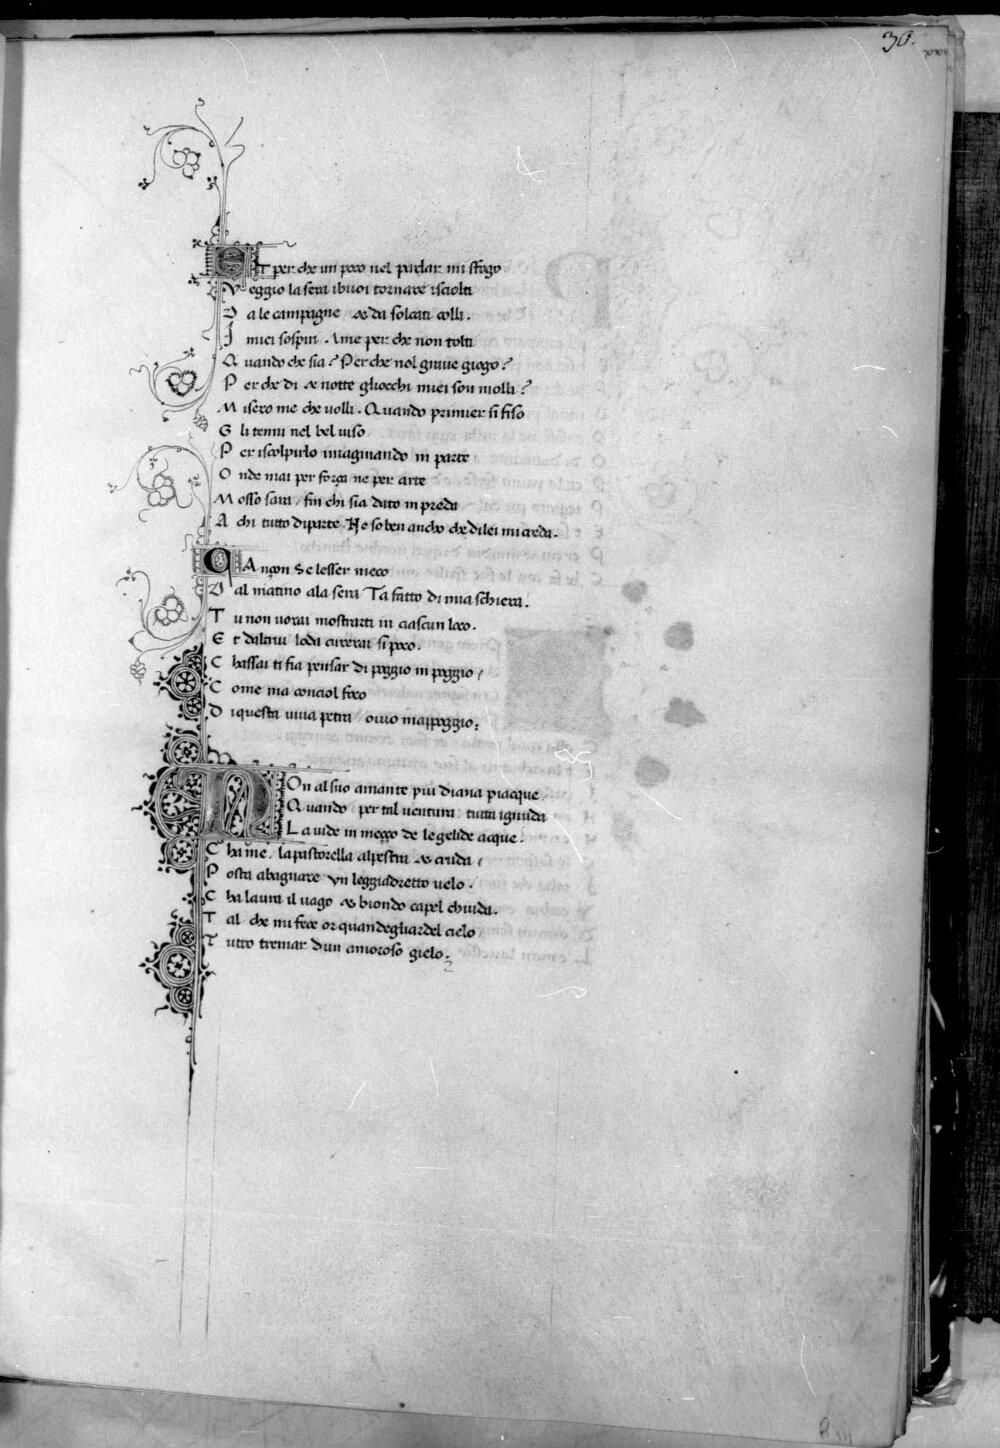 30.
ET per che un poco nel parlar mi sfogo
V eggio la sera i buoi tornare isciolti
D a le campagne & da solcati colli.
I miei sospiri . Ame per che non tolti
Q uando che sia? Per che nol graue giogo?
P er che di & notte gliocchi miei son molli?
M isero me che uolli . Quando primier si fiso
G li tenni nel bel uiso
P er iscolpirlo imaginando in parte
O nde mai per força ne per arte
M osso sara fin chi sia dato in preda
A chi tutto diparte. Ne so ben ancho che dilei mi creda.
CAnçon Se lesser meco
D al matino ala sera Ta fatto di mia schiera.
T u non uorai mostrarti in ciascun loco.
E t daltrui loda curerai si poco.
C hassai ti fia pensar di poggio in poggio /
C ome ma conciol foco
D i questa uiua petra ouio mappoggio;
NOn al suo amante piu diana piacque
Q uando per tal uentura tutta ignuda
L a uide in meçço de le gelide acque.
C ha me la pastorella alpestra & cruda /
P osta abagnare vn leggiadretto uelo.
C ha laura il uago & biondo capel chiuda.
T al che mi fece or quandegliardel cielo
T utto tremar dun amoroso gielo.